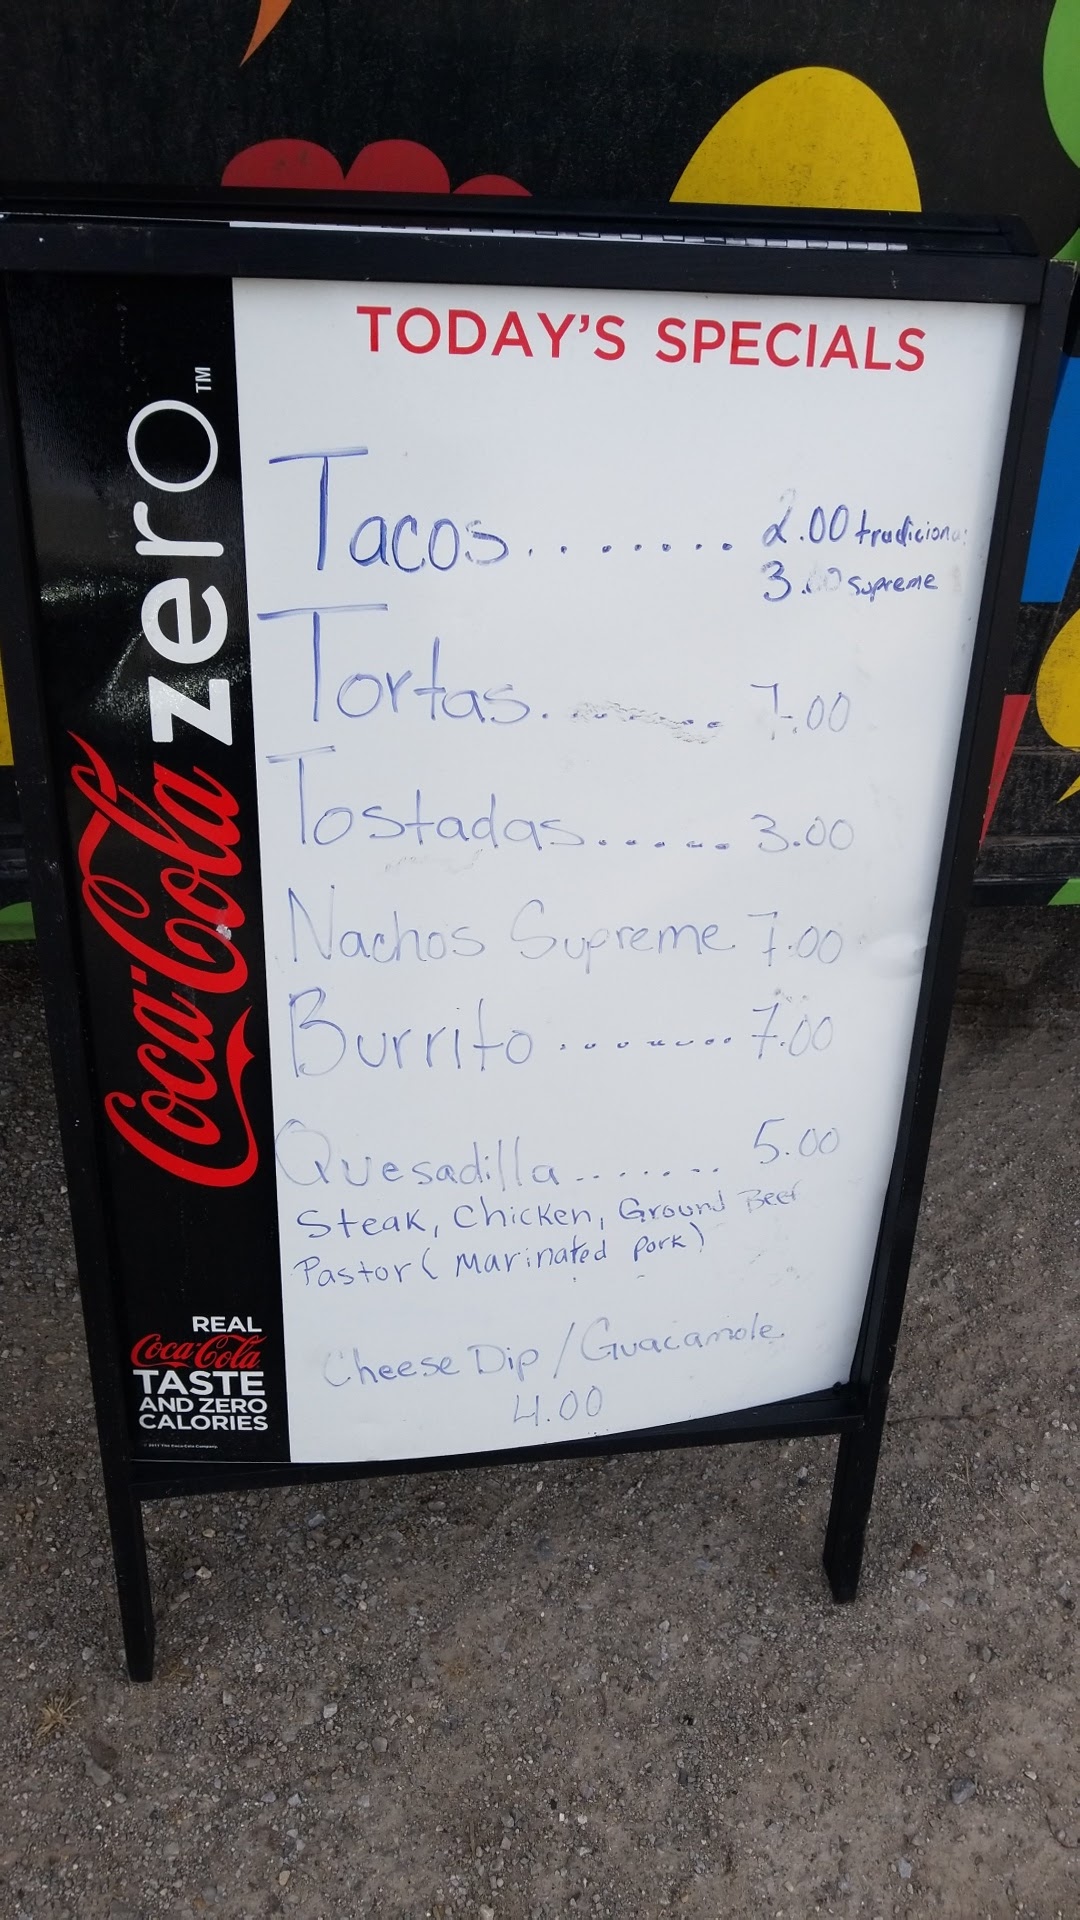 TODAY'S SPECIALS
Tacos........ 2.00 tradicional
3.00 supreme
Tortas........ 7.00
Tostadas...... 3.00
Nachos Supreme 7.00
Burrito ........ 7.00
Quesadilla....... 5.00
Steak, Chicken, Ground Beef
Pastor (Marinated pork)
Cheese Dip / Guacamole
4.00
Coca-Cola zero™
REAL
Coca-Cola
TASTE
AND ZERO
CALORIES